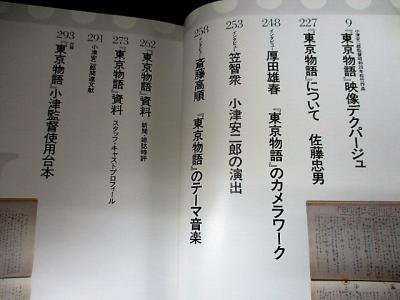 9
小津安二郎監督昭和28年松竹作品
『東京物語』映像デクパージュ
227
『東京物語』について 佐藤忠男
248
インタビュー
厚田雄春 『東京物語』のカメラワーク
253
インタビュー
笠智衆 小津安二郎の演出
258
インタビュー
斎藤高順 『東京物語』のテーマ音楽
262
『東京物語』資料 新聞・雑誌時評
273
『東京物語』資料 スタッフ・キャストプロフィール
291
小津安二郎関連文献
293
付録
『東京物語』小津監督使用台本